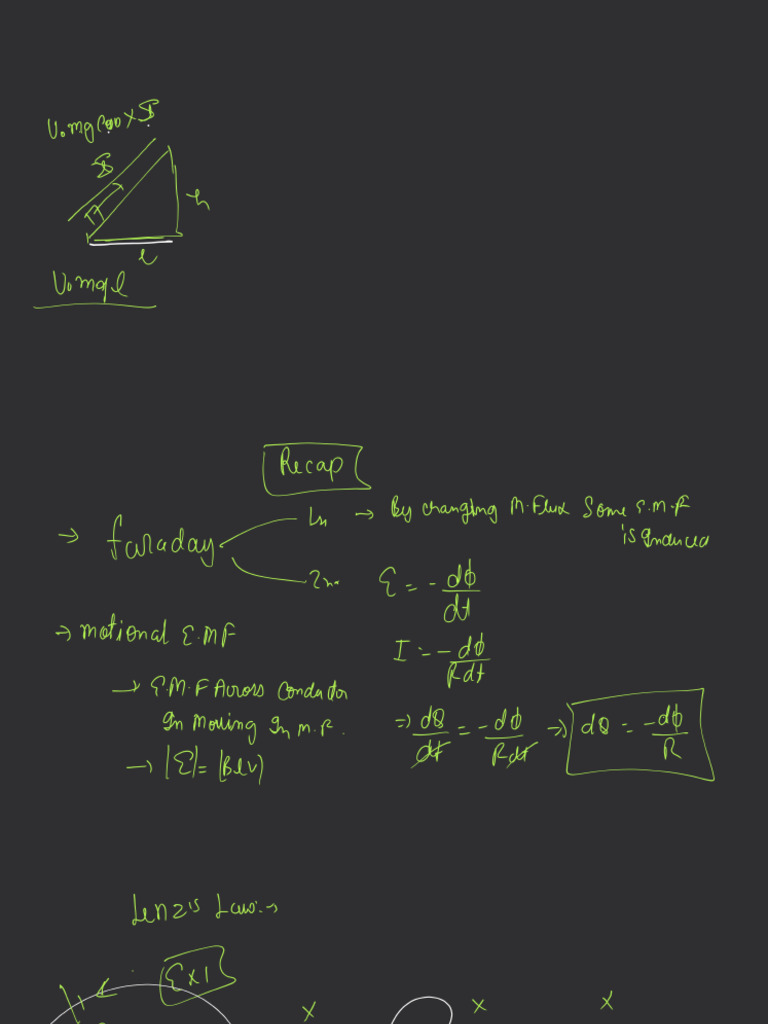 h
l
Recap
→ faraday
→ By changing M.Flux Some E.M.F
is Induced
ε = - dϕ/dt
→ motional E.M.F
I = - dϕ/Rdt
→ E.M.F Across Conductor
In Moving In M.F.
⇒ dQ/dt = - dϕ/Rdt ⇒ dQ = -dϕ/R
→ |ε| = (Blv)
Lenz's Law:→
Ex1
x x x